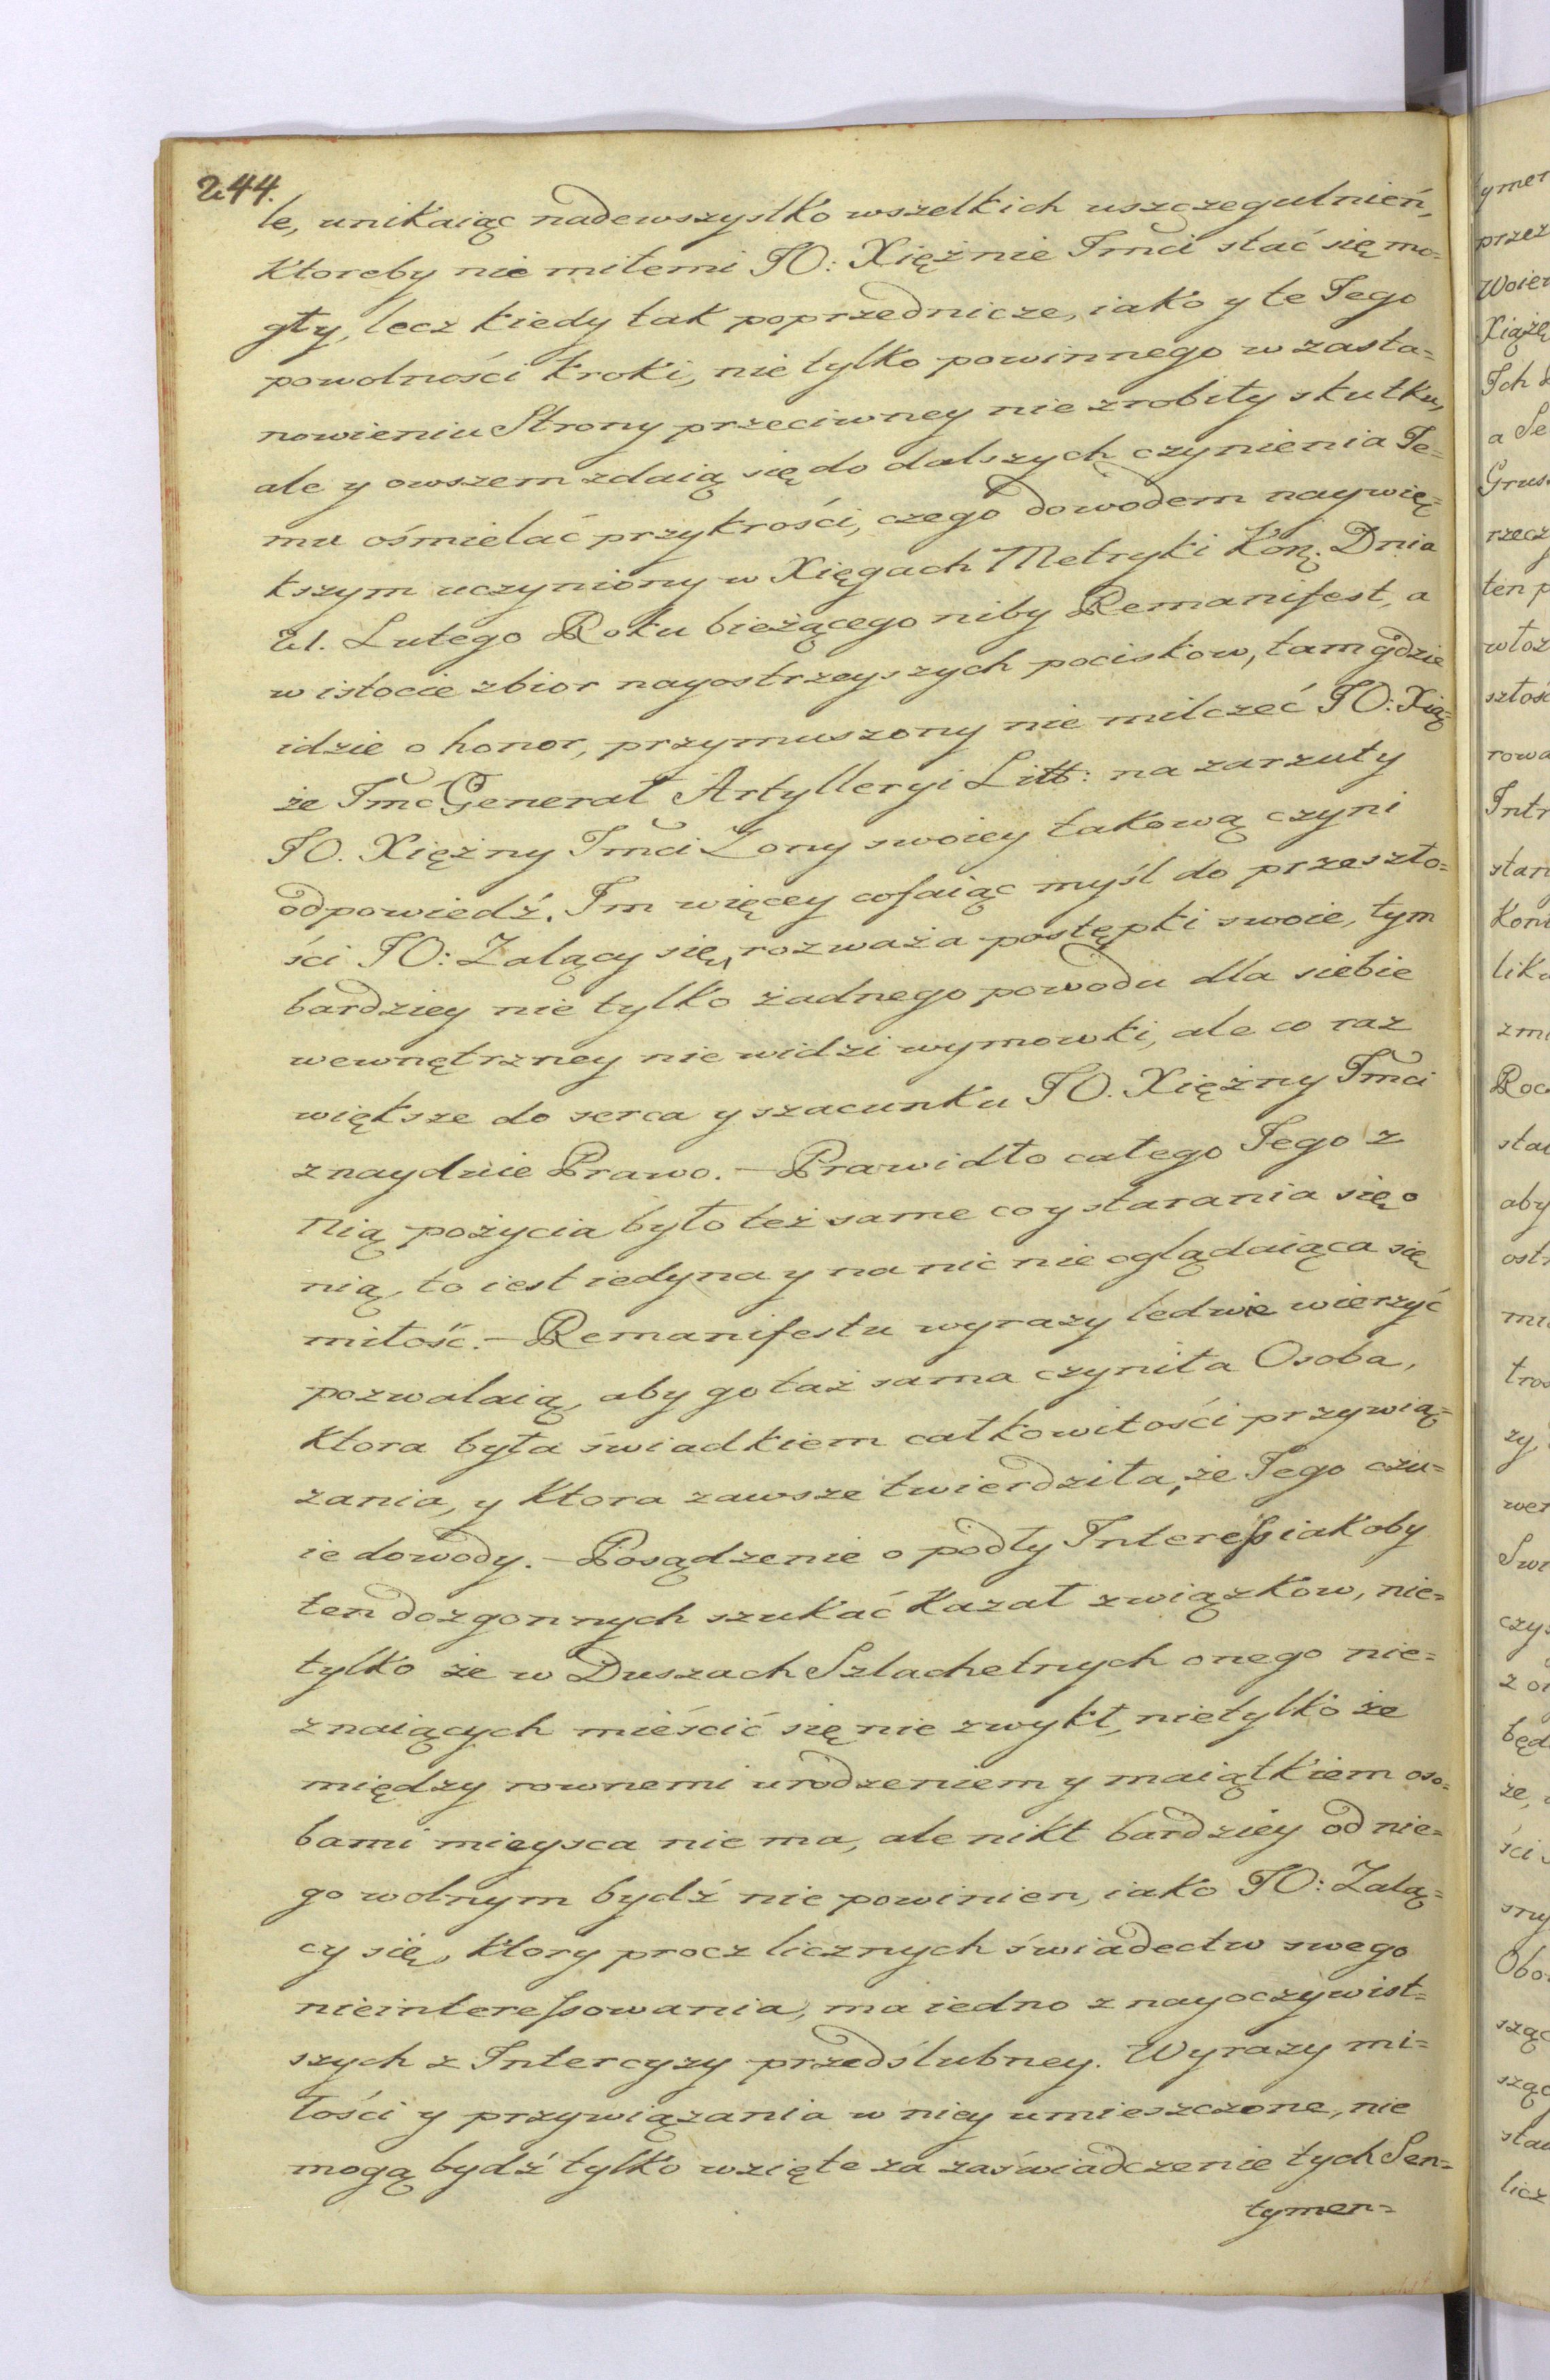 244.
le, unikaiąc nadewszystko wszelkich uszczegulnień,
ktoreby nie miłemi JO: Xiężnie Jmci stać się mo=
gły, lecz kiedy tak poprzednicze, iako y te Jego
powolności kroki, nie tylko powinnego w zasta=
nowieniu Strony przeciwney nie zrobiły skutku,
ale y owszem zdaią się do dalszych czynienia Je=
mu ośmielać przykrości, czego dowodem naywię=
kszym uczyniony w Xięgach Metryki Kor: Dnia
21. Lutego Roku bieżącego niby Remanifest, a
w istocie zbior nayostrzeyszych pociskow, tam gdzie
idzie o honor, przymuszony nie milczeć JO: Xią=
że Jmć Generał Artylleryi Litt: na zarzuty
JO. Xiężny Jmci Żony swoiey takową czyni
odpowiedź. Im więcey cofaiąc myśl do przeszło=
ści JO: Żalący się, rozważa postępki swoie, tym
bardziey nie tylko żadnego powodu dla siebie
wewnętrzney nie widzi wymowki, ale co raz
większe do serca y szacunku JO. Xiężny Jmci
znayduie Prawo. – Prawidło całego Jego z
Nią pożycia było też same co y starania się o
nią, to iest iedyna y na nic nie oglądaiąca się
miłość. – Remanifestu wyrazy ledwie wierzyć
pozwalaią, aby go taż sama czyniła Osoba,
ktora była świadkiem całkowitości przywią=
zania, y ktora zawsze twierdziła, że Jego czu=
ie dowody. – Posądzenie o podły Interess iakoby
ten dozgonnych szukać kazał związkow, nie=
tylko że w Duszach Szlachetnych onego nie=
znaiących mieścić się nie zwykł, nietylko że
między rownemi urodzeniem y maiątkiem oso=
bami mieysca nie ma, ale nikt bardziey od nie=
go wolnym bydź nie powinien, iako JO: Żalą=
cy się, ktory procz licznych świadectw swego
nieinteressowania, ma iedno z nayoczywist=
szych z Intercyzy przedślubney. Wyrazy mi=
łości y przywiązania w niey umieszczone, nie
mogą bydź tylko wzięte za zaświadczenie tych Sen=
tymen=